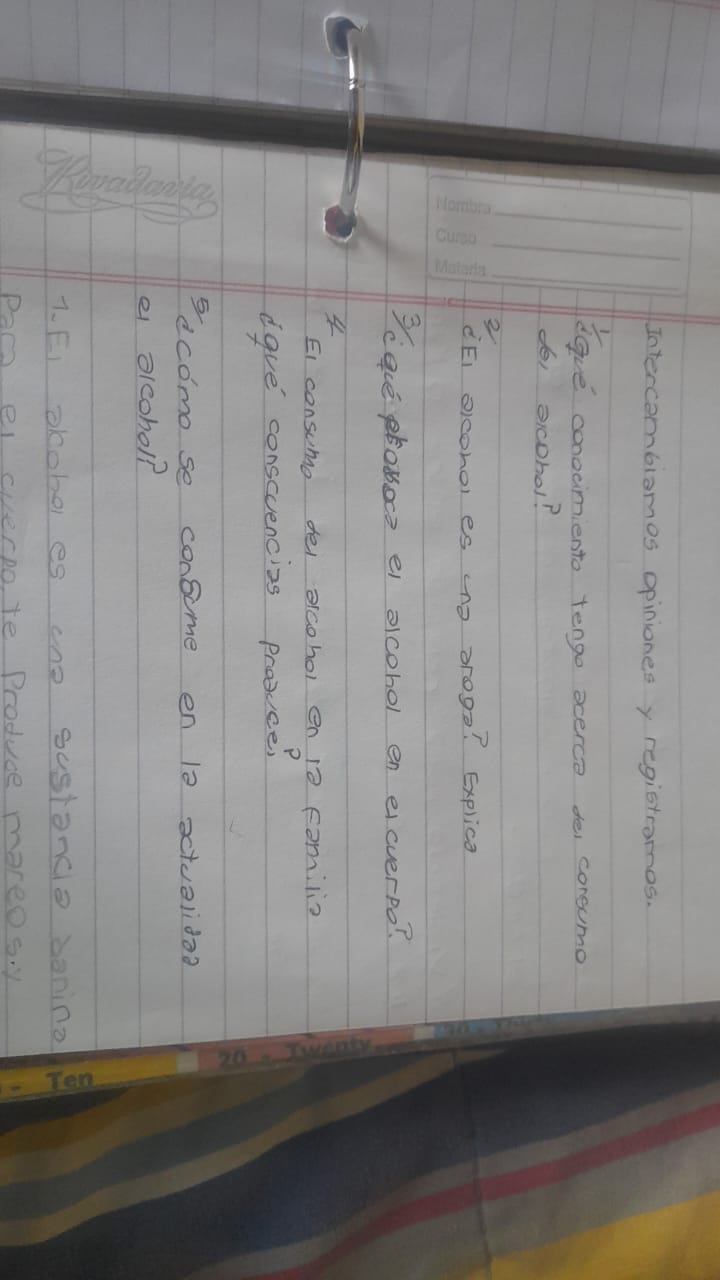 Nombre
Curso
Materia
Rivadavia
Intercambiamos opiniones y registramos.
1/¿qué conocimiento tengo acerca del consumo
del alcohol?
2/
¿El alcohol es una droga? Explica
3/¿qué el alcohol en el cuerpo?
4
El consumo del alcohol en la familia
¿qué conscuencias produce?
5/¿cómo se consume en la actualidad
el alcohol?
1-El alcohol es una sustancia
Para el cuerpo, te Produce mareos.y
20 - Twenty
- Ten